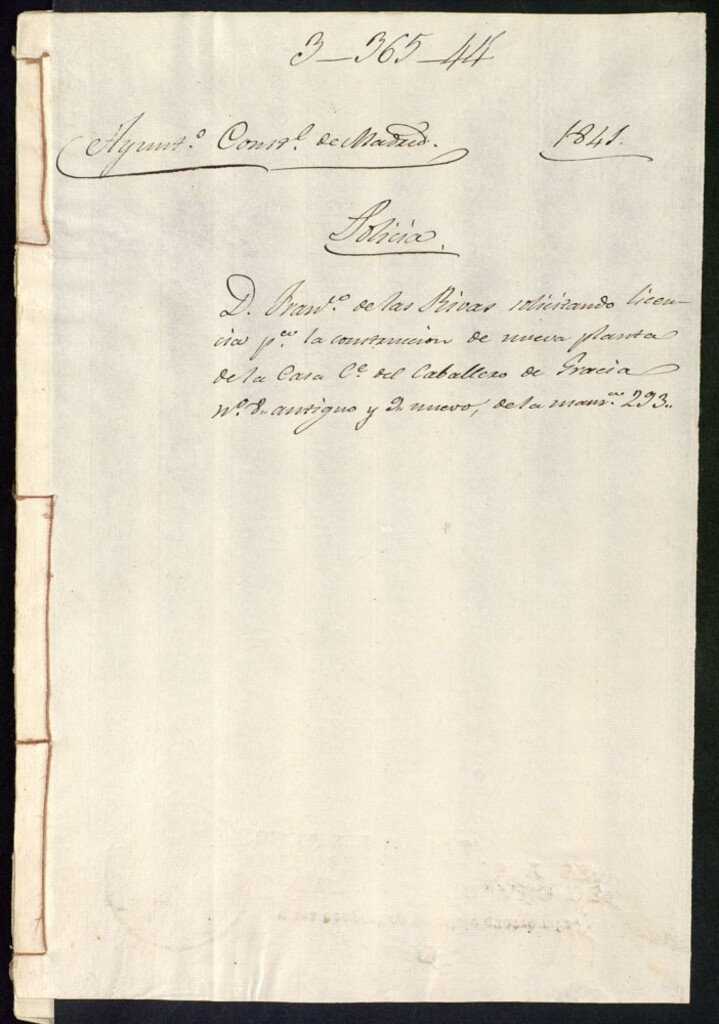 3-365-44
Ayunt.º Const.l de Madrid. 1841.
Policía.
D. Fran.co de las Rivas solicitando licen-
cia p.a la construccion de nueva planta
de la Casa C.e del Caballero de Gracia
n.º 8 antiguo y 2 nuevo, de la manz.na 293.